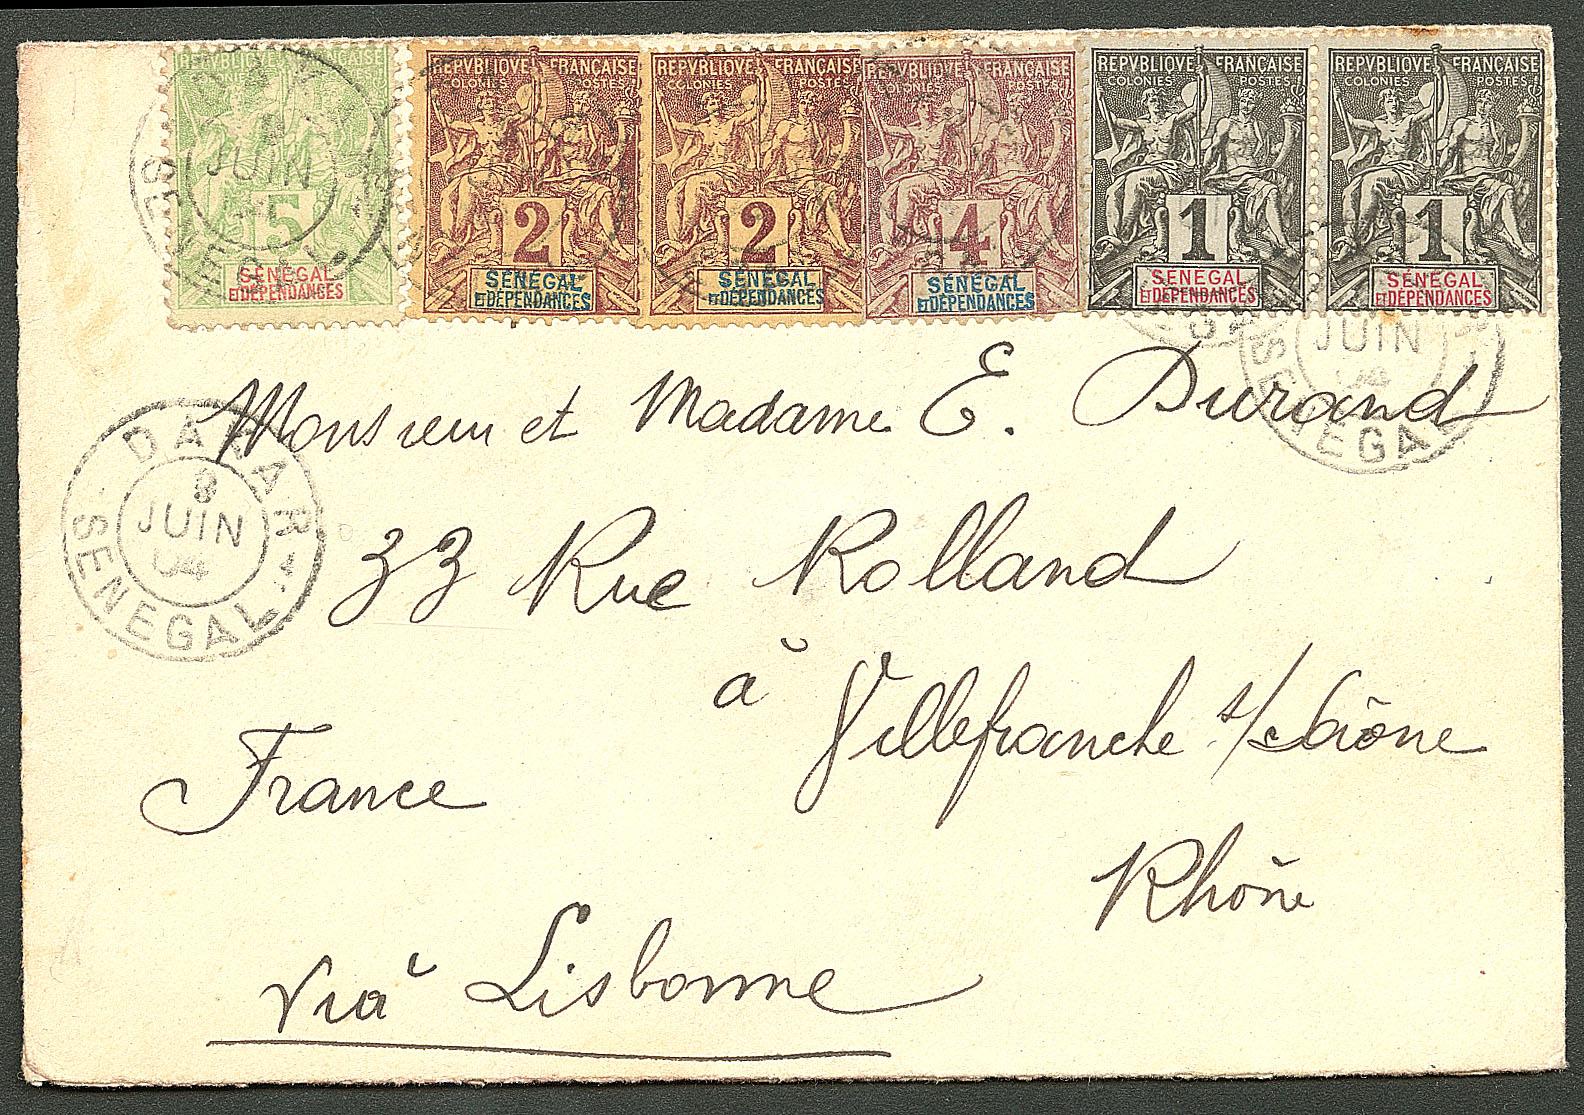 REPVBLIQVE FRANÇAISE
COLONIES POSTES
5
SÉNÉGAL
ET DÉPENDANCES
REPVBLIQVE FRANÇAISE
COLONIES POSTES
2
SÉNÉGAL
ET DÉPENDANCES
REPVBLIQVE FRANÇAISE
COLONIES POSTES
2
SÉNÉGAL
ET DÉPENDANCES
REPVBLIQVE FRANÇAISE
COLONIES POSTES
4
SÉNÉGAL
ET DÉPENDANCES
REPVBLIQVE FRANÇAISE
COLONIES POSTES
1
SÉNÉGAL
ET DÉPENDANCES
REPVBLIQVE FRANÇAISE
COLONIES POSTES
1
SÉNÉGAL
ET DÉPENDANCES
JUIN
SENEGAL
JUIN
04
SENEGAL
Monsieur et Madame E. Durand
DAKAR
8
JUIN
04
SENEGAL
33 Rue Rolland
à Villefranche s/Saône
France
Rhône
Viâ Lisbonne